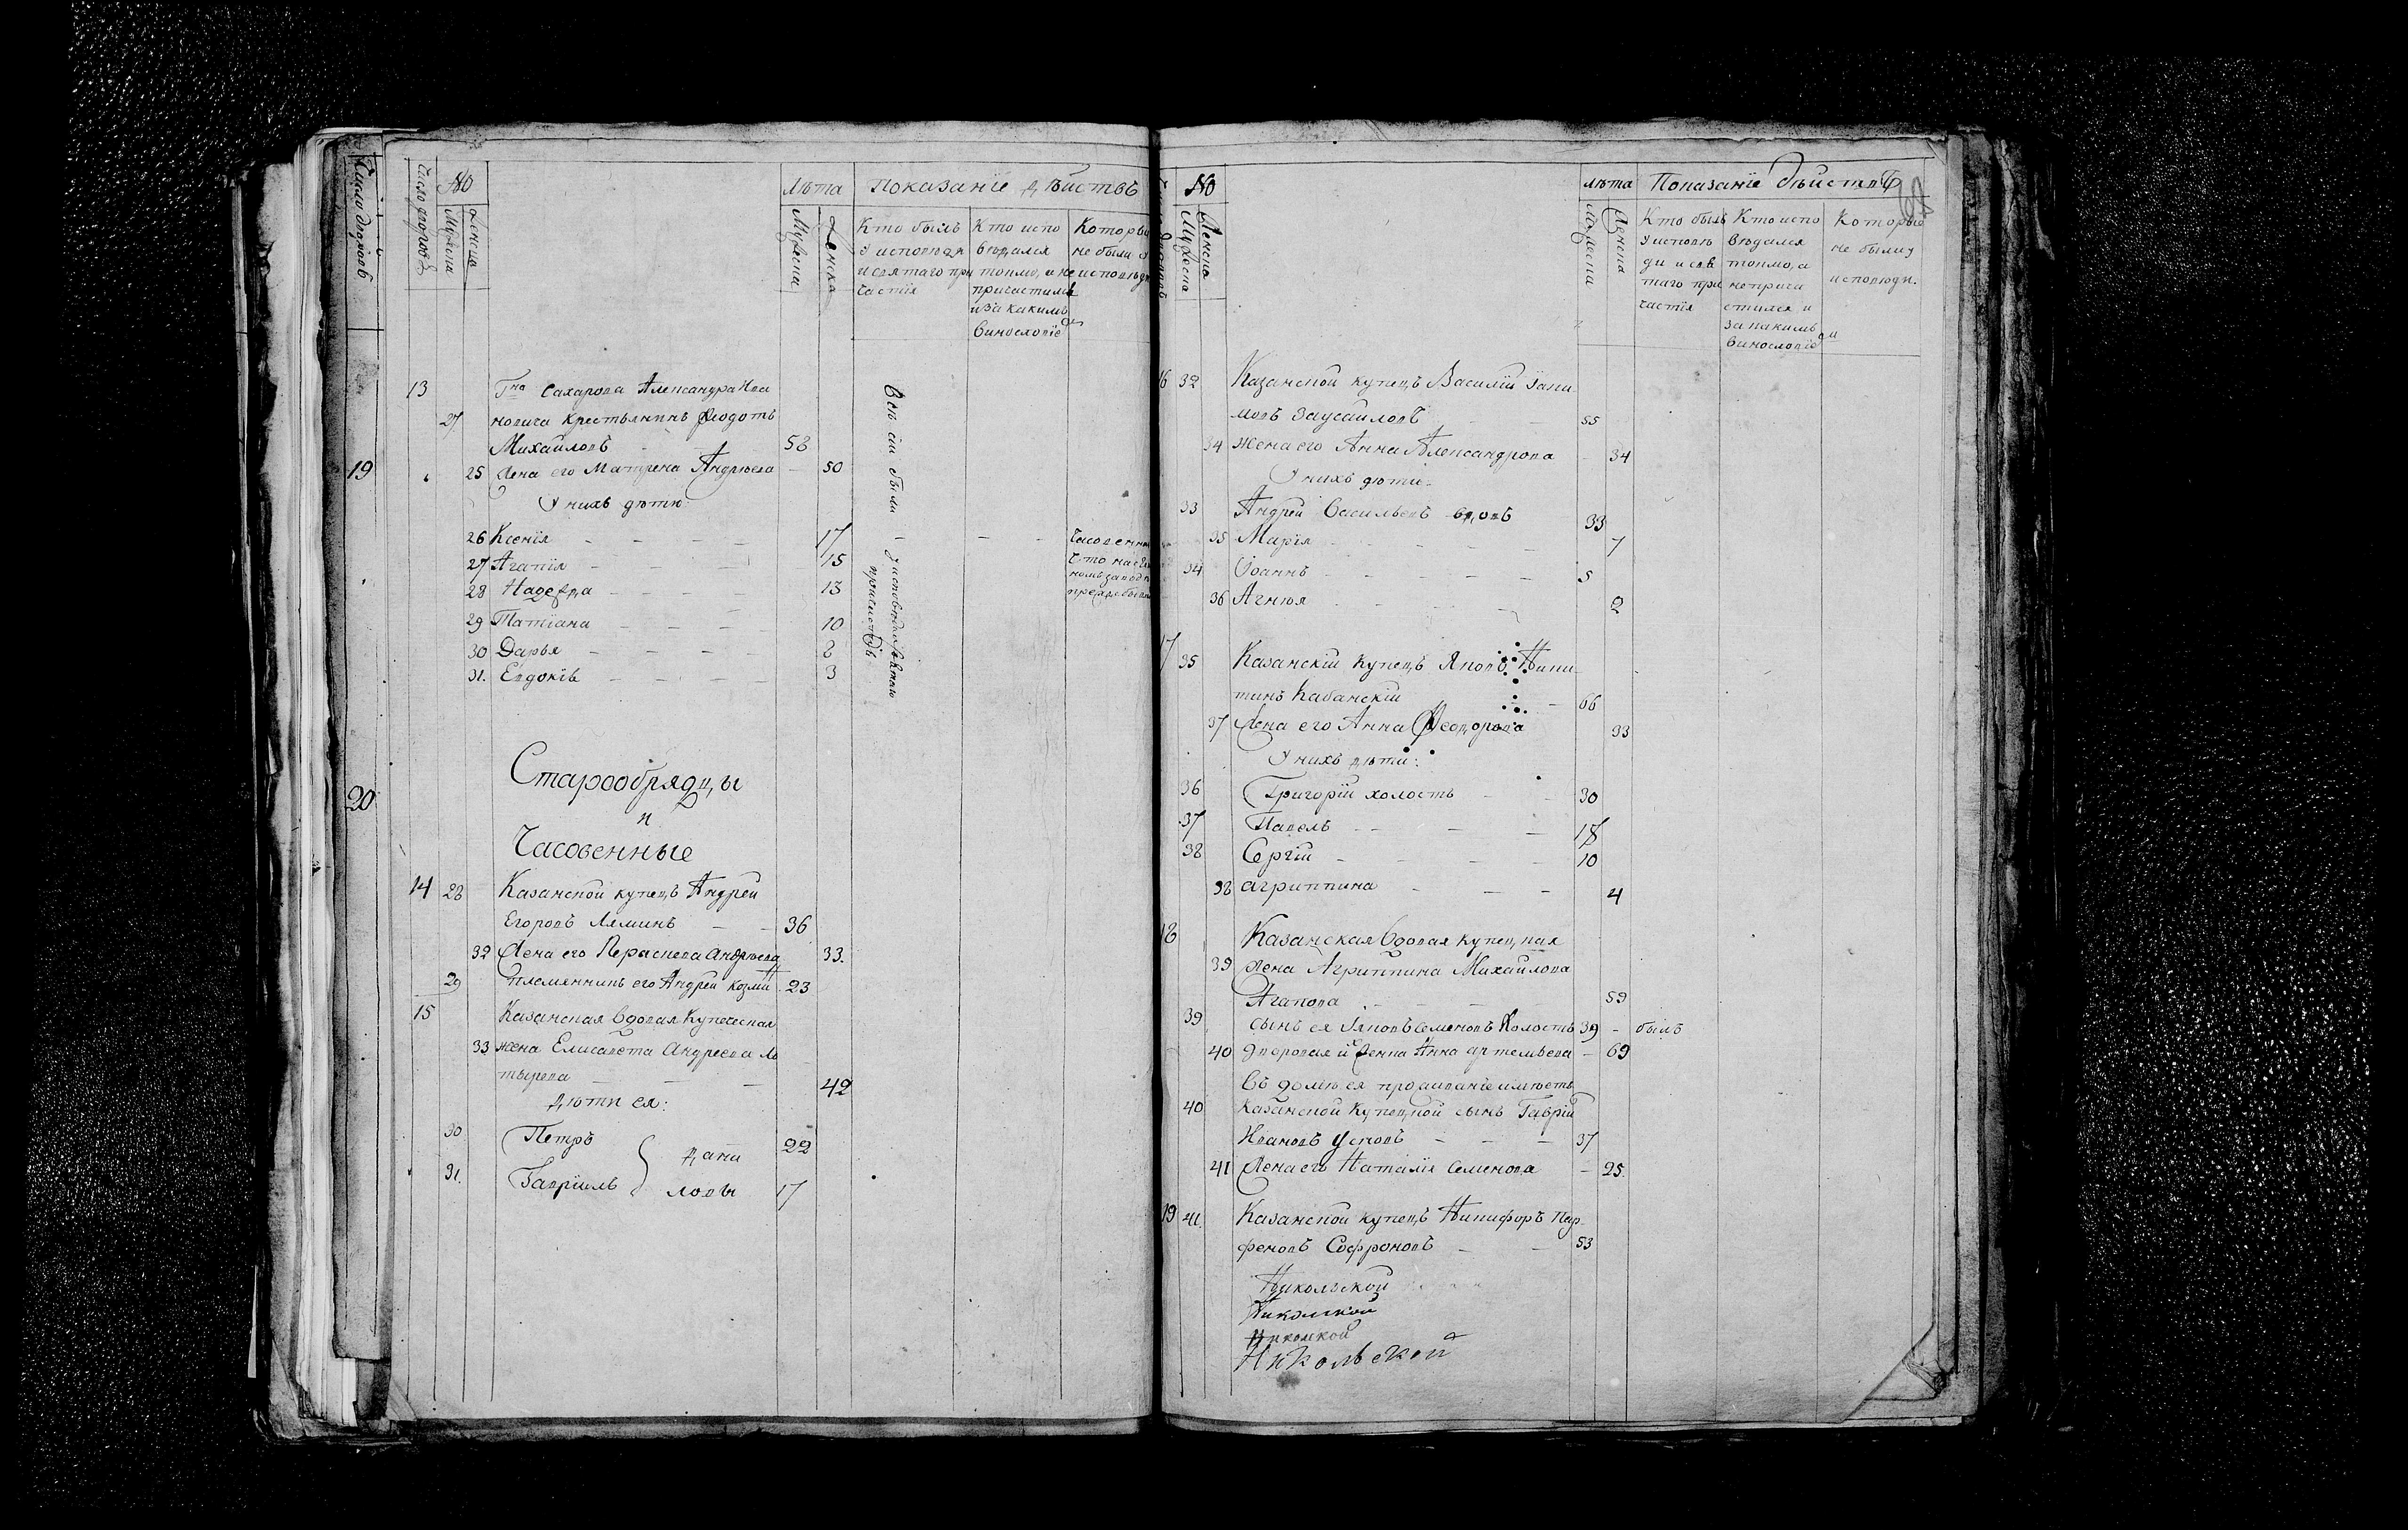 Число дворовъ
19
20
Число дворовъ
№
Мужеска
Женска
Лѣта
Мужеска
Женска
Показанїе дѣйствъ
Кто былъ
у исповѣди
и святаго при
частїя
Кто испо
вѣдался
токмо, а не
причастился
и за какимъ
винословїемъ
Которыи
не были у
исповѣди
13
Гна Сахарова Александра Ива
27 новича крестьянинъ Ѳеодотъ
Михайловъ 58
25 Жена его Матрена Андрѣева 50
У нихъ дѣти:
26 Ксенїя 17
27 Агапїя 15
28 Надежда 13
29 Татїана 10
30 Дарья 8
31. Евдокїя 3
Всѣ сїи были у исповѣди и святаго
причастїя
Старообрядцы
и
Часовенные
14 28 Казанской купецъ Андрей
Егоровъ Ляминъ 36
32 Жена его Параскева Андрѣева 33.
29 племянникъ его Андрей Козми 23
15 Казанская вдовая купеческая
33 жена Елисавета Андреева Ла
тырева 42
Дѣти ея:
30 Петръ 22
31. Гаврїилъ } Дани
ловы 17
№
Мужеска
Женска
лѣта
Мужеска
Женска
Показанїе дѣйствъ
Кто былъ
у исповѣ
ди и свя
таго при
частїя
Кто испо
вѣдался
токмо, а
не прича
стился и
за какимъ
винословїемъ
Которые
не были у
исповѣди.
16 32 Казанской купецъ Василїй Яки
мовъ Заусайловъ 55
34 жена его Анна Александрова 34
У нихъ дѣти:
33 Андрей Васильевъ вдовъ 33
35 Марїя 7
34 Іоаннъ 5
36 Агнїя 2
17 35 Казанскїй купецъ Яковъ Ники
тинъ Кабанскїй 66
37 Жена его Анна Ѳеодорова 33
У нихъ дѣти:
36 Григорїй холостъ 30
37 Павелъ 18
38 Сергїй 10
38 Агриппина 4
18 Казанская вдовая купецкая
39 жена Агриппина Михайлова
Агапова 59
39 сынъ ея Яковъ Семеновъ холостъ 39 - былъ
40 дворовая их женка Анна Артемьева 69
Въ домѣ ея проживанїе имѣетъ
40 Казанской купецкой сынъ Гаврїи
Ивановъ Усковъ 37
41 Жена его Наталїя Семенова 25.
19 41. Казанской купецъ Никифоръ Пар
феновъ Софроновъ 53
Никольской
Николской
Николской
Никольской